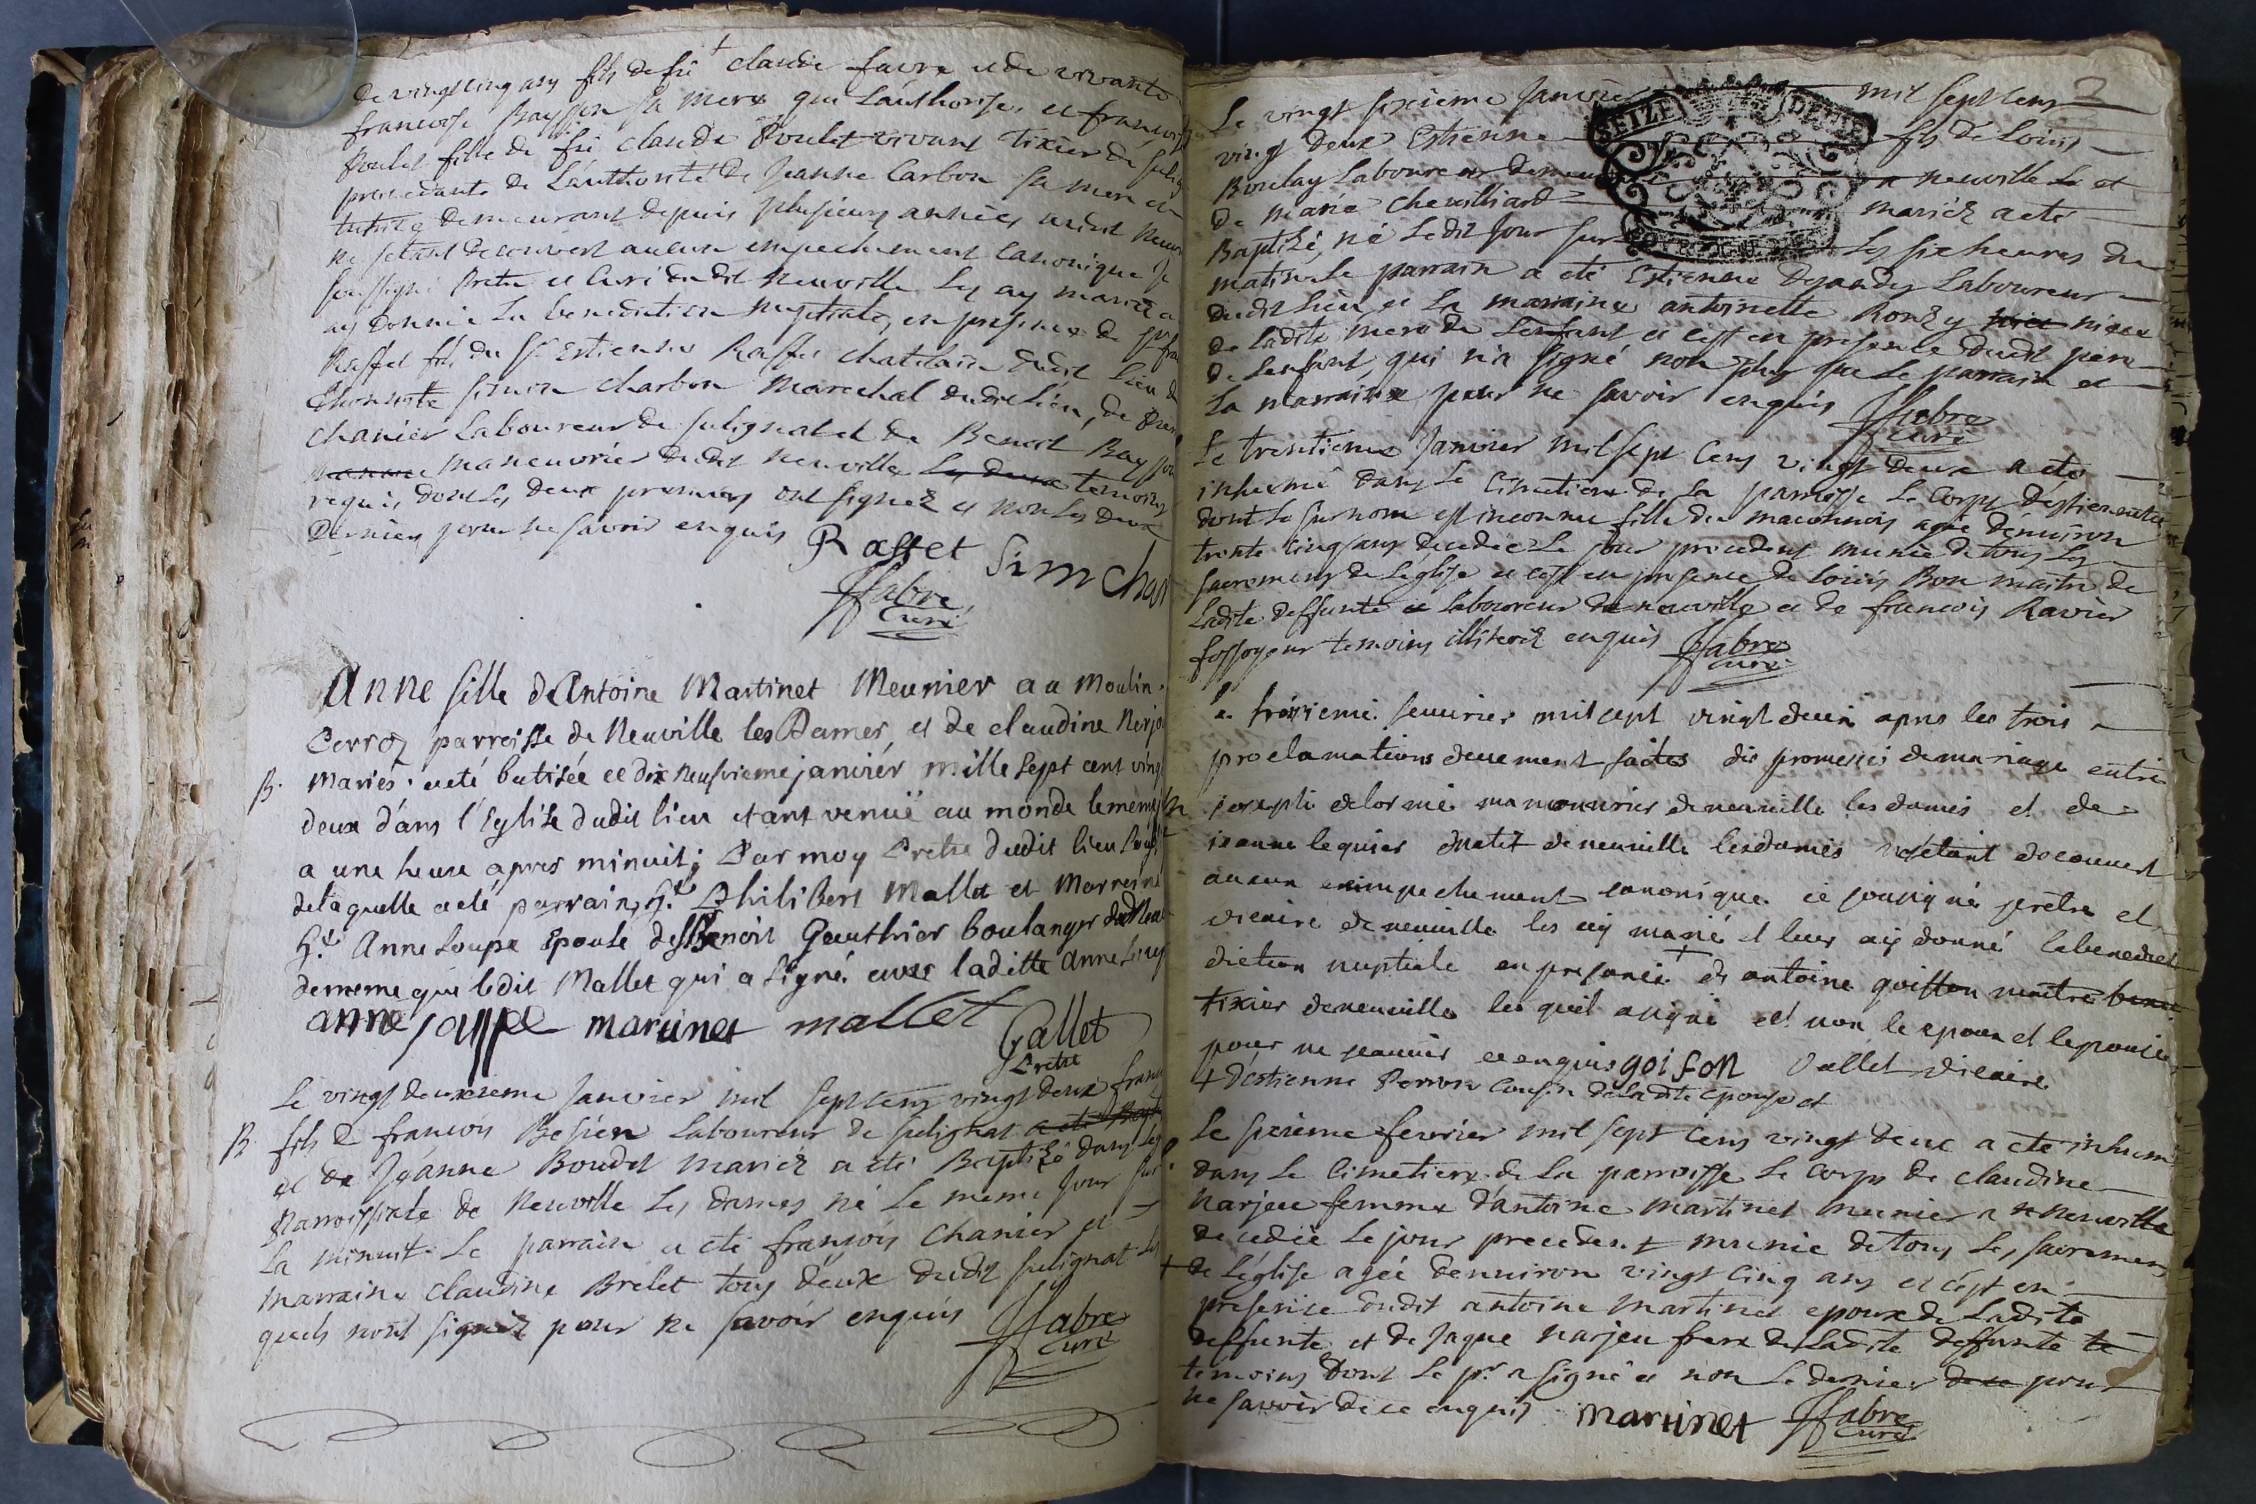 de vingt cinq ans fils de feu + claude favre et de vivante
francoise Bayssen sa mere qui L'authorise, et francoise
Poulet fille de feu claude Poulet vivant tixier de
procedante de L'authorité de Jeanne Carbon sa mere et
tutrice demeurant depuis plusieurs années audit
ne setant decouvert aucun empechement canonique Je
soussigné Pretre et Curé dudit Neuville Les ay mariéz et
ay donnéé La benediction nuptiale, en presence de
Raffet fils du Sr Estienne Raffet chatelain dudit lieu de
honneste simon charbon Marechal dudit Lieu, de
chanier Laboureur de sulignat et de Benoit
manouvrier dudit neuville Les deux temoins
requis, dont les deux premiers ont signéz et non les deux
derniers pour ne savoir enquis Raffet Sim Char
ffabre
Curé
Anne fille d'Antoine Martinet Meunier au Moulin
parroisse de Neuville les Dames, et de claudine
B. Mariés. aeté batisée ce dix neufvieme janvier mille sept cent vingt
deux dans l'Eglise dudit lieu etant venuë au monde le meme
a une heure apres minuit; Par moy Pretre dudit lieu
delaquelle aeté parrain, Philibert Mallet et Marreine
Anne Loupe Epouse de Benoit Gauthier boulanger
dememe que ledit Mallet qui a signé avec laditte Anne
anne martinet mallet
Gallet
Pretre
Le vingt deuxieme Janvier mil sept cens vingt deux
B. fils de francois Besien Laboureur de sulignat a eté
et de Jeanne Boudet mariéz a eté Baptizé dans
Parroissiale de Neuville Les dames né Le meme Jour sur
La minuit. Le parrain a eté francois Chanier et
marraine Claudine Brelet tous deux dudit sulignat Les
quels n'ont signéz pour ne savoir enquis ffabre
Curé
2
Le vingt sixieme Janvier mil sept cens
SEIZE DE
vingt deux Estienne fils de Loüis
Boulay Laboureur demeurant a neuville Le et
de marie Chevilliard mariéz a eté
Baptizé, né Ledit Jour sur Les six heures du
matin Le parrain a eté Estienne Laboureur
dudit Lieu et La marraine antoinette niece
de Ladite mere de L'enfant, et c'est en presence dudit pere
de Lenfant, qui n'a signé non plus que Le parrain et
La marraine pour ne savoir enquis ffabre
Curé
Le trentieme Janvier mil sept Cens vingt deux a eté
inhumé dans Le Cimetiere de La parroisse Le Corps d'estiennette
dont Le surnom est inconnu fille du maconnois agée d'environ
trente cinq ans decedée Le Jour precedent munie de tous Les
sacremens de L'eglise et c'est en presence de Loüis Bon maitre de
Ladite deffunte et Laboureur de neuville et de francois Ravier
fossoyeur temoins illiteréz enquis ffabre
Curé
Le troisieme feuvrier mil sept vingt deux apres les trois
proclamations deuement faites des promesses de mariage entre
joseph delorme manouvrier de neuville les dames et de
jeanne lequier de neuville les dames n'esetant decouvert
aucun empechement canonique je soussigné pretre et
vicaire de neuville les ay marié et leur ay donné la benedic
diction nuptiale en presence + de antoine goiffon maitre
tixier de neuville le quel a signé et non le epoux et lepouse
pour ne scavoir ce enquis goifon Vallet vicaire
+ d'estienne Perron Cousin de Ladite epouse et
Le sixieme fevrier mil sept cens vingt deux a eté inhumé
dans Le Cimetiere de La parroisse Le Corps de claudine
narjeu femme d'antoine martinet munier a neuville
decedée Le jour precedent munie de tous Les sacremens
de L'eglise agée d'environ vingt cinq ans et c'est en
presence dudit antoine martinet epoux de Ladite
deffunte et de Jaque narjeu frere de Ladite deffunte
temoins dont Le pr. a signé et non Le dernier pour
ne savoir de ce enquis martinet ffabre
Curé